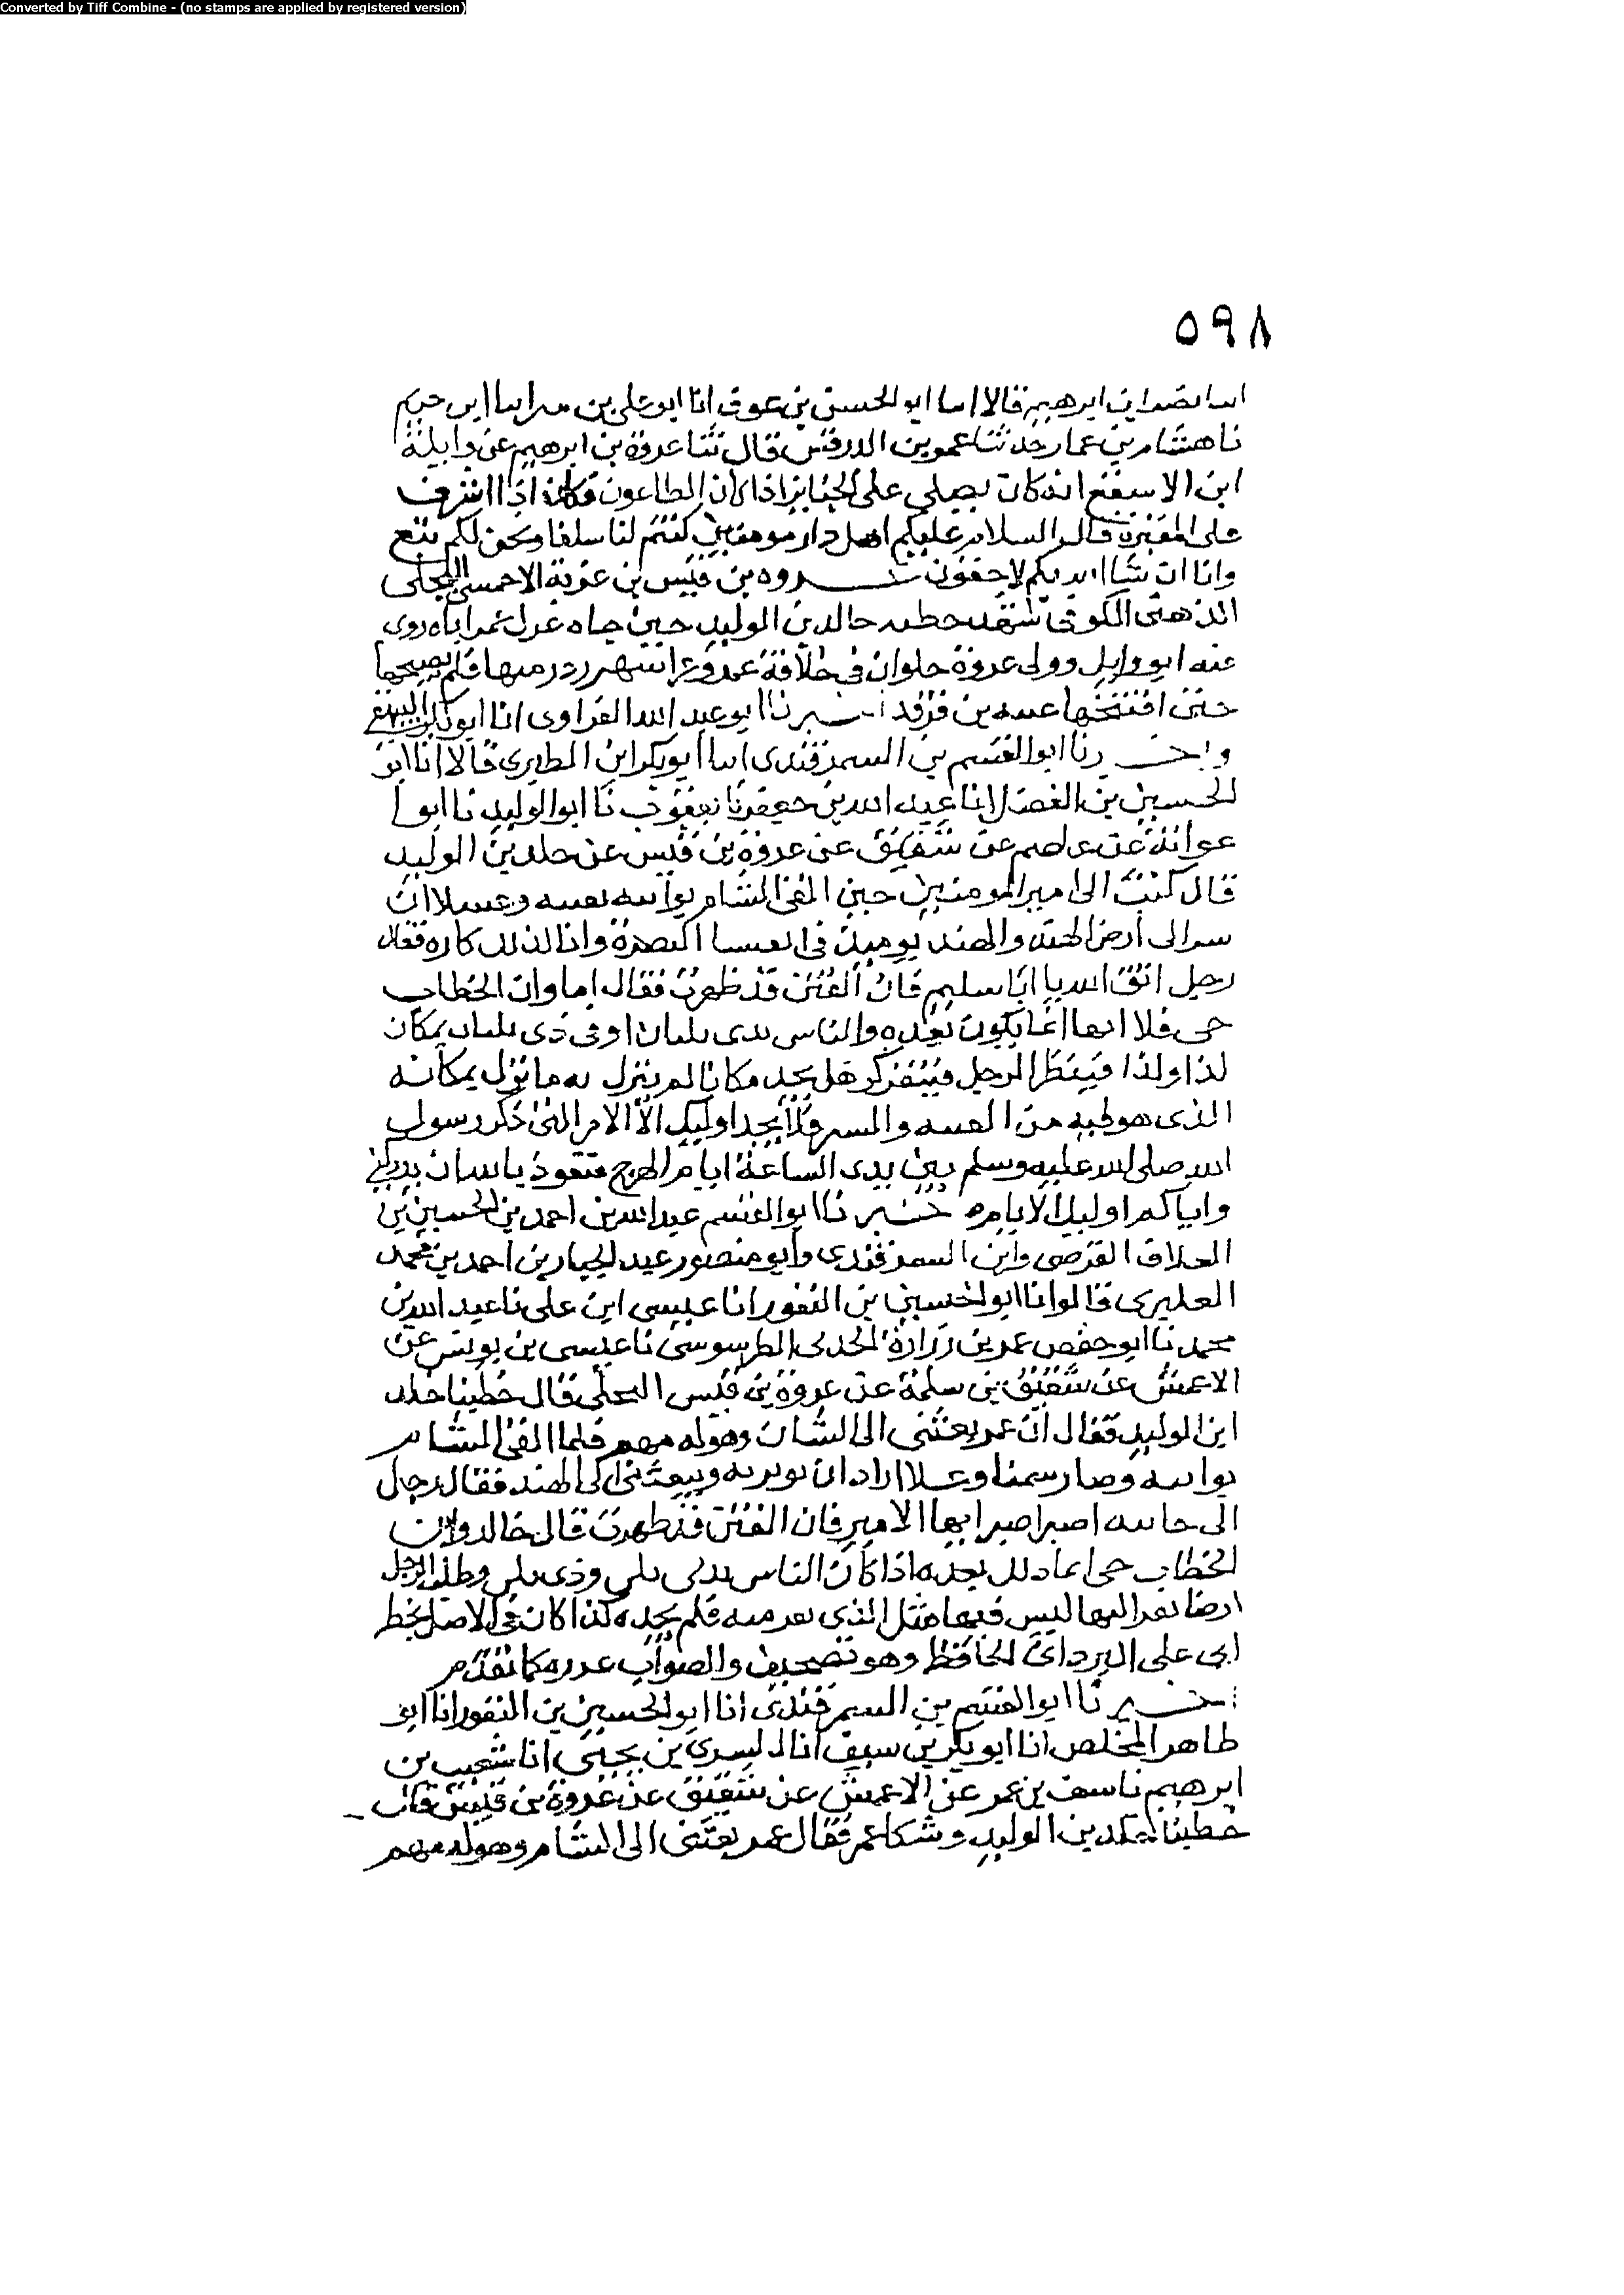 Converted by Tiff Combine - (no stamps are applied by registered version)
٥٩٨
ابن ابرهيم قالا انا ابو الحسن بن عوف انا ابو على بن انا ابن خريم
نا هشام بن عمار حدثنا عمرو بن الدرفس قال ثنا عروة بن ابرهيم عن واثلة
ابن الاسقع انه كان يصلي على الجنايز اذا كان الطاعون فكان اذا اشرف
على المقبرة قال السلام عليكم اهل دار مومنين كنتم لنا سلفا ونحن لكم تبع
وانا ان شا الله بكم لاحقون عروه بن قيس بن عزية الاحمسي البجلي
الدهني الكوفي شهد خطبه خالد بن الوليد حين جاه عزل عمر اياه روى
عنه ابو وايل وولى عروة حلوان في خلافة عمر وغزا شهرزور منها فلم يفتحها
حتى افتتحها عتبه بن فرقد اخبرنا ابو عبد الله الفراوى انا ابو بكر البيهقي
واخبرنا ابو القسم بن السمرقندى انا ابو بكر ابن الطبرى قالا انا ابو
الحسين بن الفضل انا عبد الله بن جعفر نا يعقوب نا ابو الوليد نا ابو
عوانة عن عاصم عن شقيق عن عروة بن قيس عن خلد بن الوليد
قال كتب الى امير المومنين حين القى الشام بوانيه بثنيه وعسلا ان
سر الى ارض الهند والهند يوميذ في انفسنا البصرة وانا لذلك كاره فقال
رجل اتق الله يا ابا سليم فان الفتن قد ظهرت فقال اما وابن الخطاب
حى فلا انها انما يكون بعده والناس بذى بليان او في ذى بليان بمكان
لذا ولذا فينظر الرجل فيتفكر هل يجد مكانا لم ينزل به ما نزل بمكانه
الذى هو فيه من الفتنه والشر فلا يجد اوليك الا الامر التى ذكر رسول
الله صلى الله عليه وسلم بين يدى الساعة ايام الهرج فنعوذ بالله ان يدركني
واياكم اوليك الايام اخبرنا ابو القسم عبد الله بن احمد بن الحسين بن
العلاف القرضى وابن السمرقندى وابو منصور عبد الجبار بن احمد بن محمد
العكبرى قالوا انا ابو الحسين بن النقور انا عيسى ابن على نا عبد الله بن
محمد نا ابو حفص عمر بن زرارة الحدثى الطرسوسى نا عيسى بن يونس عن
الاعمش عن شقيق بن سلمة عن عروة بن قيس البجلى قال خطبنا خلد
ابن الوليد فقال ان عمر بعثنى الى الشام وهو له مهم فلما القى الشام
بوانيه وصار سمنا وعسلا اراد ان يوثر به ويبعثنى الى الهند فقال رجل
الى جانبه اصبر اصبر ايها الامير فان الفتن قد ظهرت قال خالد وابن
الخطاب حى انما ذلك بعده اذا كان الناس بذى بلى وذى بلى وطلب الرجل
ارضا يفر اليها ليس فيها مثل الذى يفر منه فلم يجده كذا كان في الاصل بخط
ابى على البردانى الحافظ وهو تصحيف والصواب عزره كما تقدم
اخبرنا ابو القسم بن السمرقندى انا ابو الحسين بن النقور انا ابو
طاهر المخلص انا ابو بكر بن سيف انا السرى بن يحيى انا شعيب بن
ابرهيم نا سيف بن عمر عن الاعمش عن شقيق عن عروة بن قيس قال
خطبنا خلد بن الوليد وشكا عمر فقال عمر بعثنى الى الشام وهو له مهم